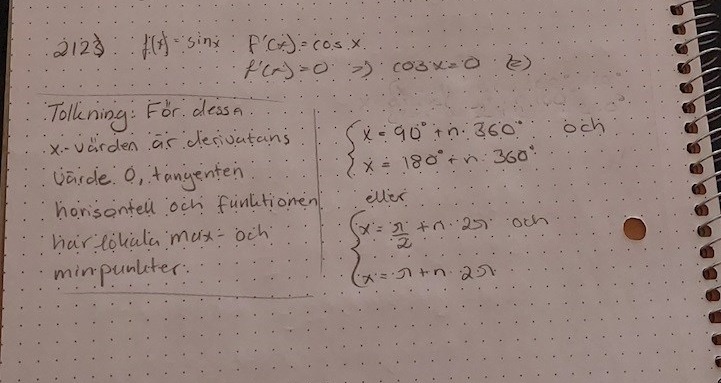 2123) f(x) = sinx f'(x) = cos x
f'(x) = 0 => cos x = 0 <=>
Tolkning: För dessa
x-värden är derivatans
värde 0, tangenten
horisontell och funktionen
har lokala max- och
minpunkter.
x = 90° + n · 360° och
x = 180° + n · 360°
eller
x = π/2 + n · 2π och
x = π + n · 2π